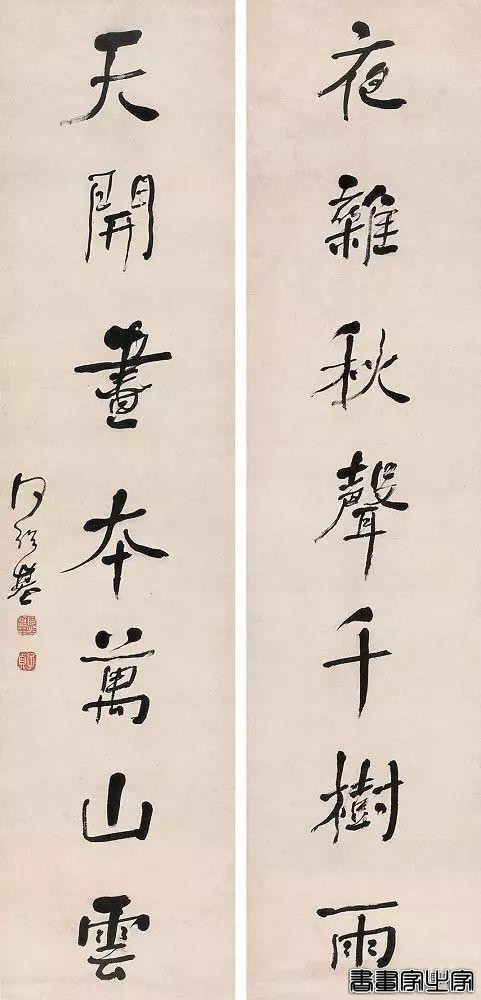 夜雜秋聲千樹雨
天開畫本萬山雲
何紹基
書畫家必字